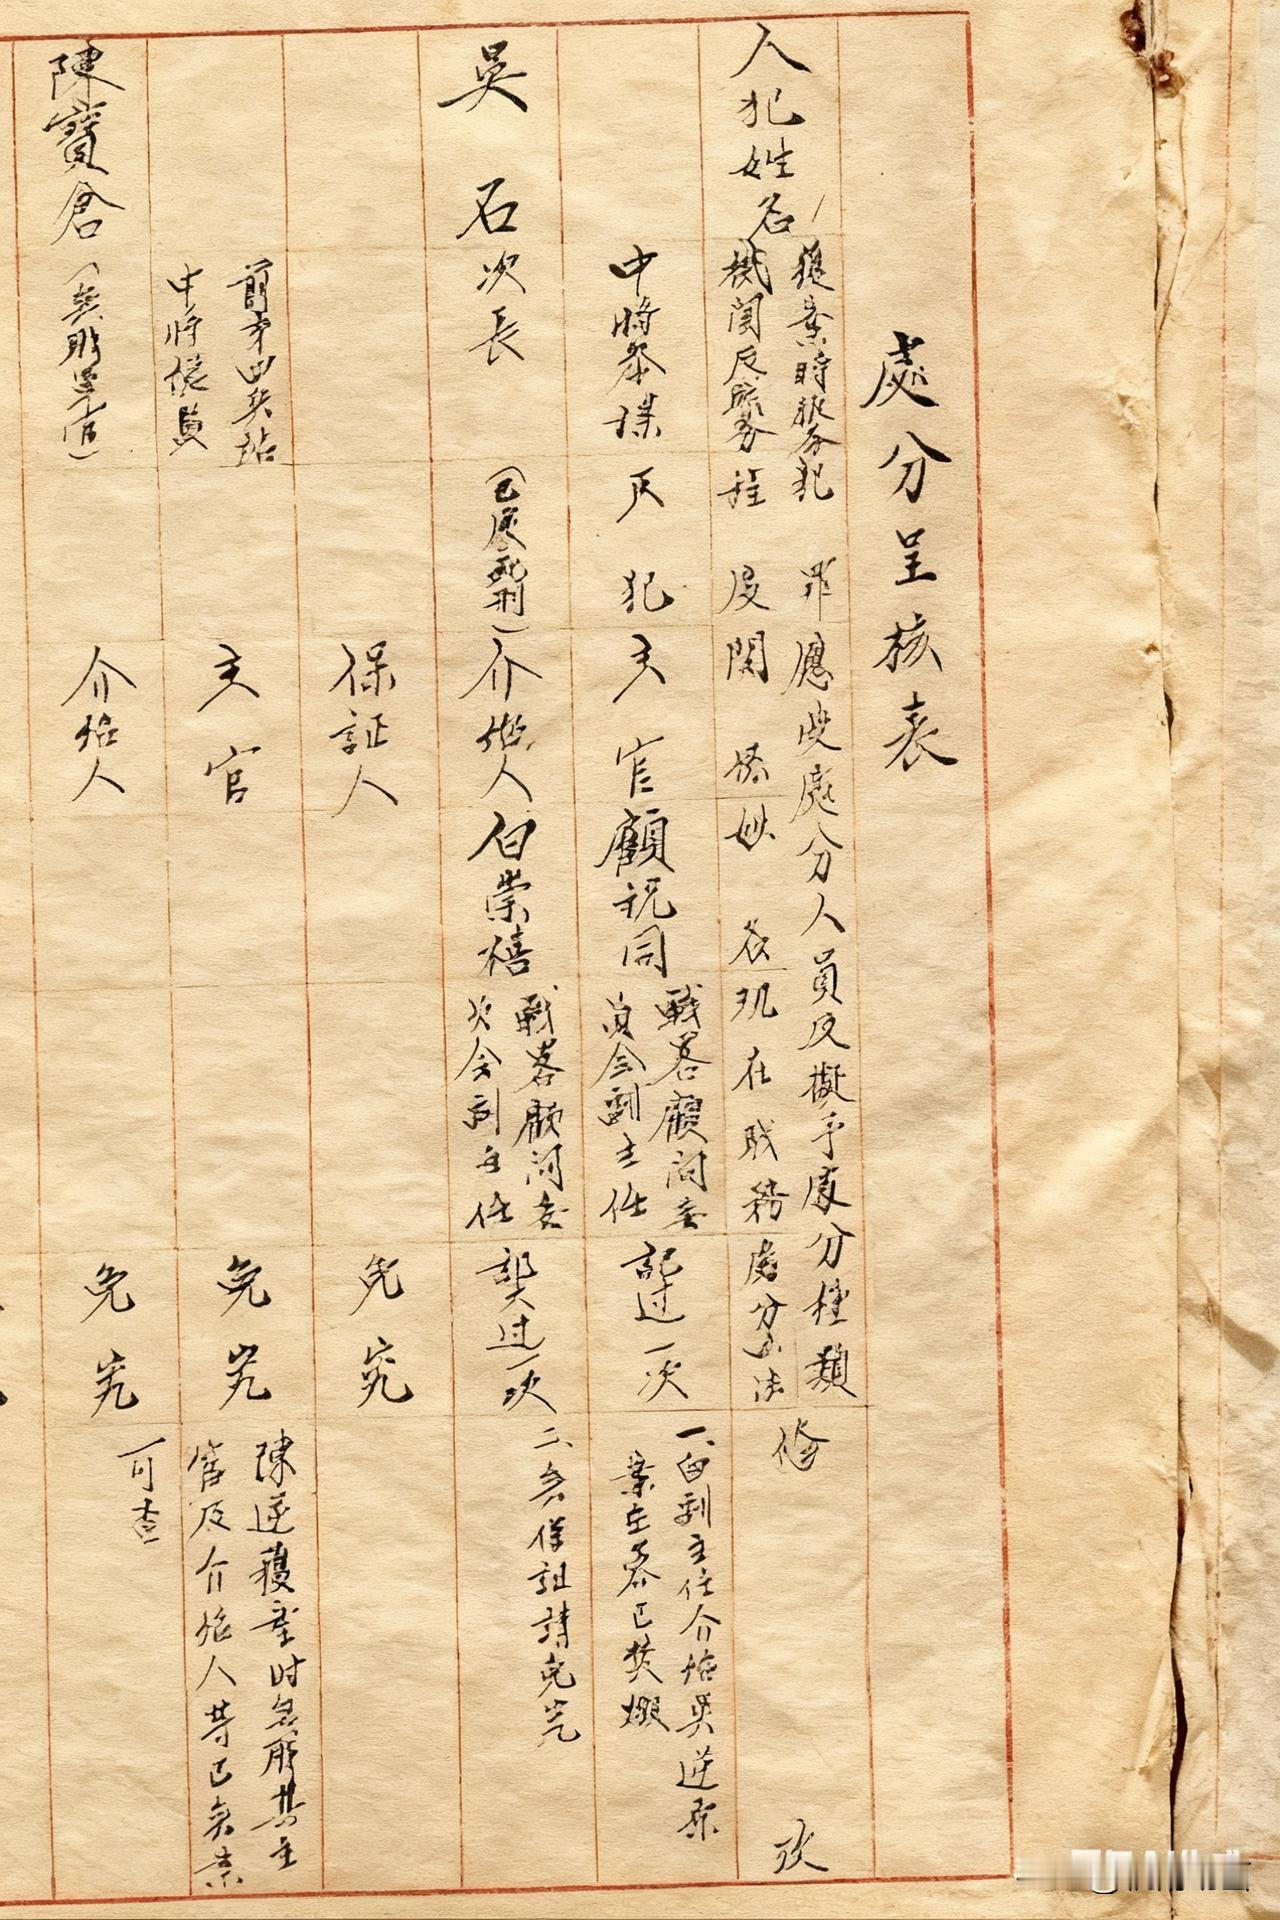 處分呈核表
人犯姓名
獲案時服務
機関及職務
犯罪應受處分人員及擬予處分種類
與犯
程度
関係
姓名
現在職務
處分办法
俻攷
吳石
中將參謀
次長
(已處死刑)
主官
顧祝同
戰畧顧問委
員會副主任
記过一次
一、白副主任介紹吳逆原
案在卷已焚燬
介紹人
白崇禧
戰畧顧問委
次會副主任
記过一次
二、無保証請免究
保証人
免究
陳寶倉
前第四兵站
中將總監
(無职軍官)
主官
免究
陳逆獲案时無职其主
官及介紹人等已無案
可查
介紹人
免究